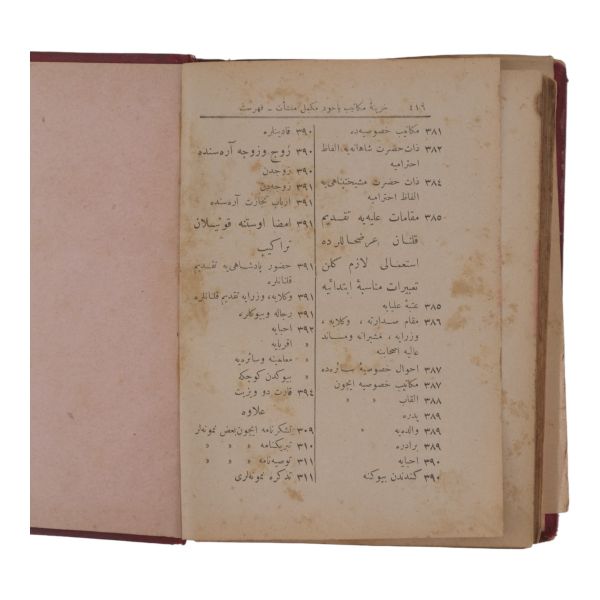 ٤١٦ خزينهٔ مكاتيب ياخود مكمل منشآت - فهرست
٣٨١ مكاتيب خصوصيه‌ده
٣٨٢ ذات حضرت شاهانه‌يه الفاظ
احتراميه
٣٨٤ ذات حضرت مشيختپناهى‌يه
الفاظ احتراميه
٣٨٥ مقامات عليه‌يه تقديم
قلنان عرضحاللرده
استعمالى لازم كلن
تعبيرات مناسبهٔ ابتدائيه
٣٨٥ عتبهٔ عليايه
٣٨٦ مقام صدارته ، وكلايه ،
وزرايه ، مشيرانه و مساند
عاليه اصحابنه
٣٨٧ احوال خصوصيهٔ سائره‌ده
٣٨٧ مكاتيب خصوصيه ايچون
٣٨٨ القاب » »
٣٨٩ پدره
٣٨٩ والده‌يه
٣٨٩ برادره
٣٩٠ احبايه
٣٩٠ كندندن بيوكنه
٣٩٠ قادينلره
٣٩٠ زوج و زوجه آره‌سنده
٣٩٠ زوجدن
٣٩١ زوجه‌دن
٣٩١ ارباب تجارت آره‌سنده
٣٩١ امضا اوستنه قونيملان
تراكيب
٣٩١ حضور پادشاهى‌يه تقديم
قلنانلره
٣٩١ وكلايه، وزرايه تقديم قلنانلره
٣٩١ رجاله و بيوكلره
٣٩٣ احبايه
» اقربايه
» معلمينه و سائره‌يه
» بيوكدن كوچكه
٣٩٤ قارت دو ويزيت
علاوه
٣٠٩ تشكرنامه ايچون بعض نمونه‌لر
٣١٠ تبريكنامه » » »
٣١١ توصيه‌نامه » » »
٣١١ تذكره نمونه‌لرى